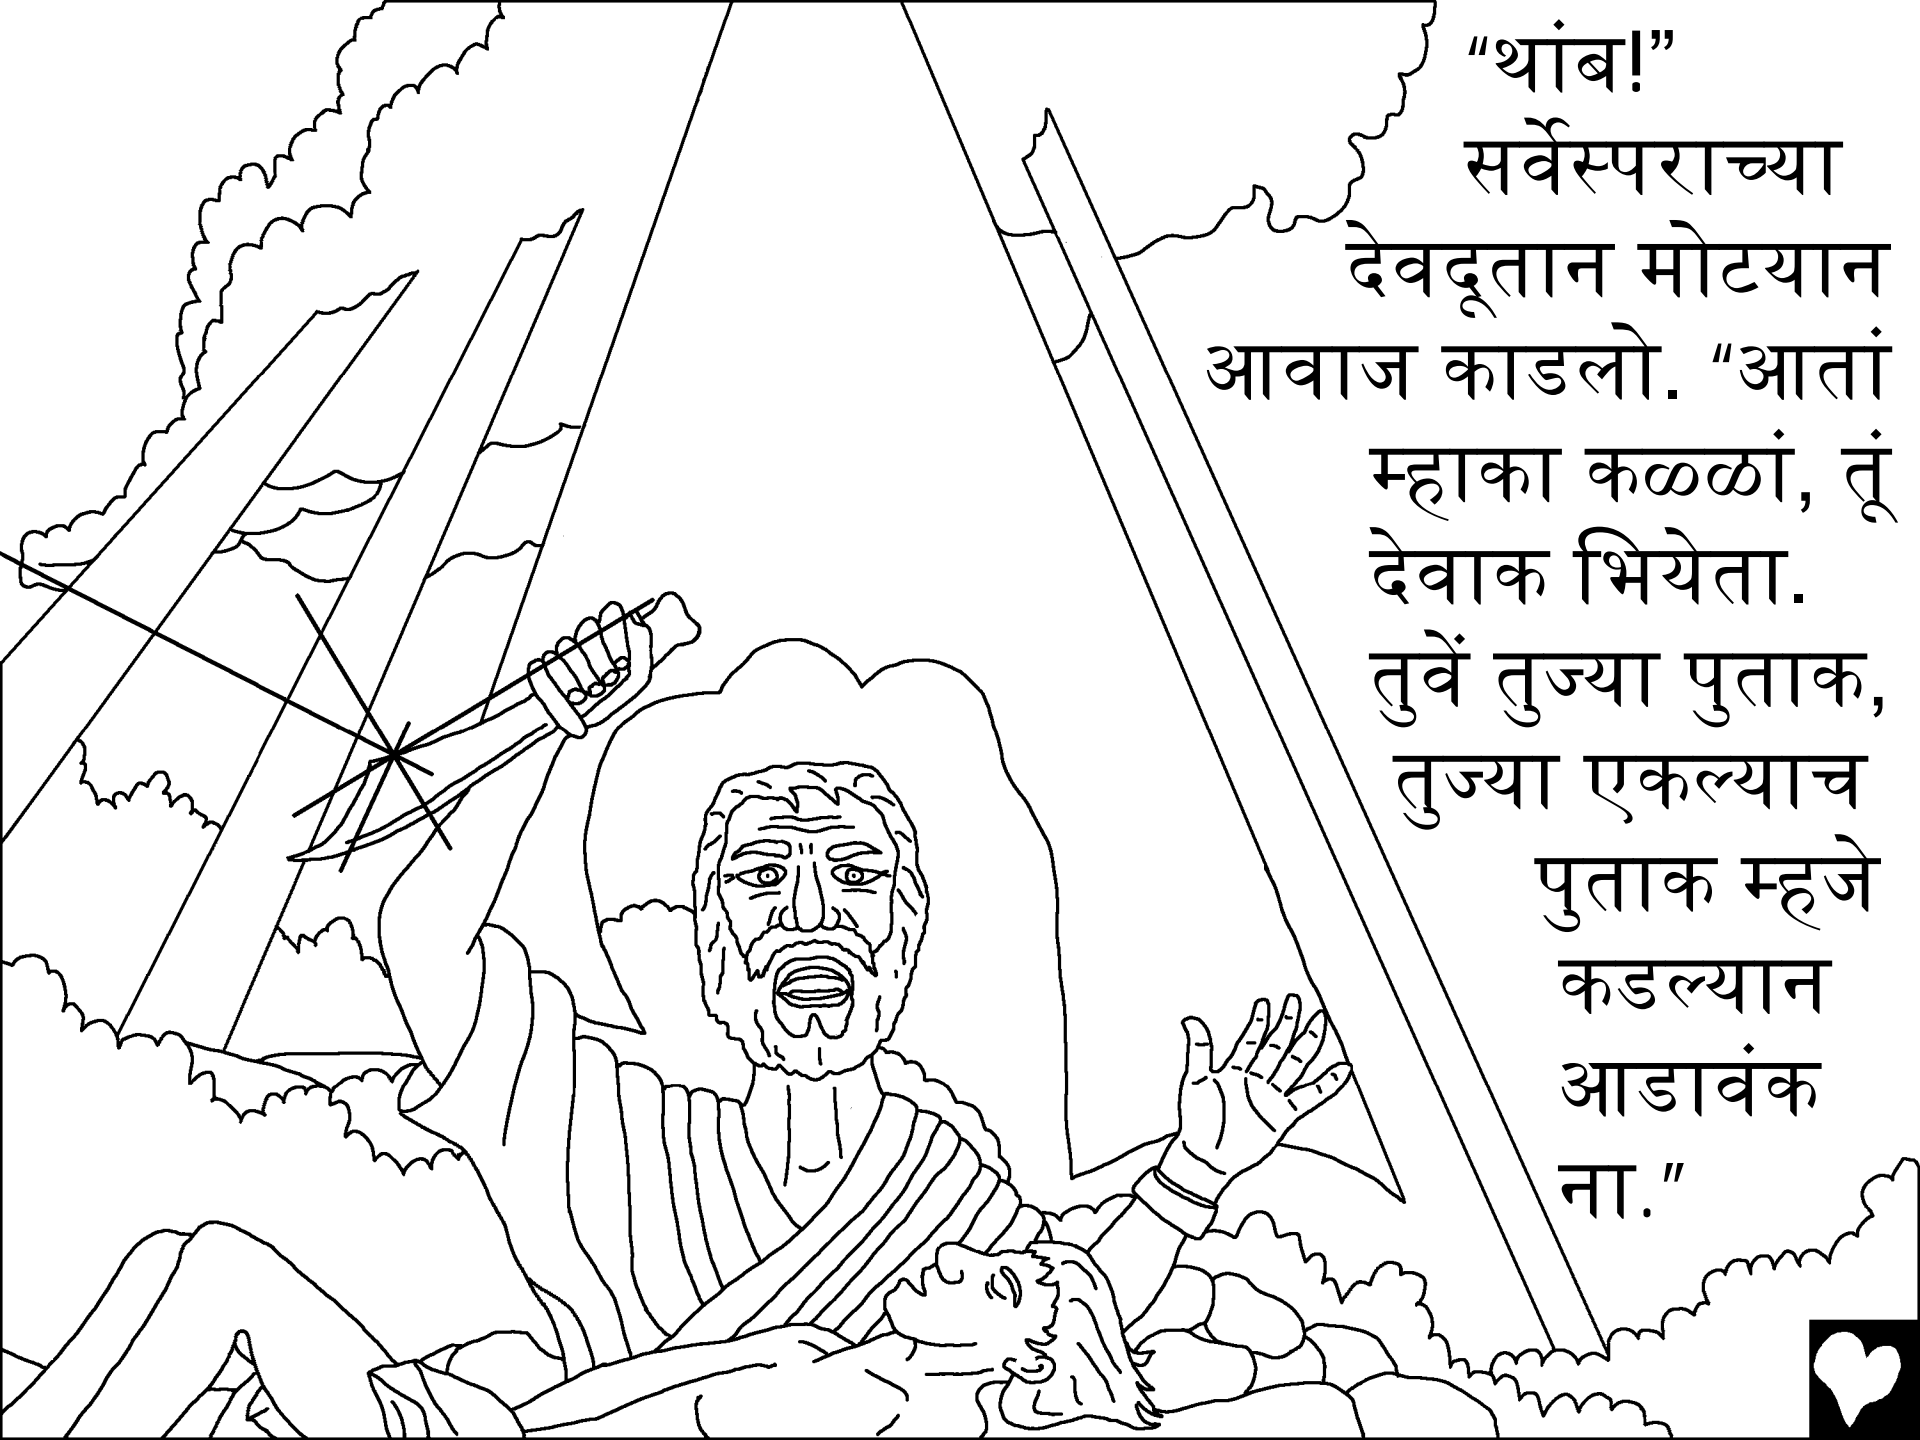 “थांब!”
सर्वेस्पराच्या
देवदूतान मोटयान
आवाज काडलो. “आतां
म्हाका कळ्ळां, तूं
देवाक भियेता.
तुवें तुज्या पुताक,
तुज्या एकल्याच
पुताक म्हजे
कडल्यान
आडावंक
ना.”